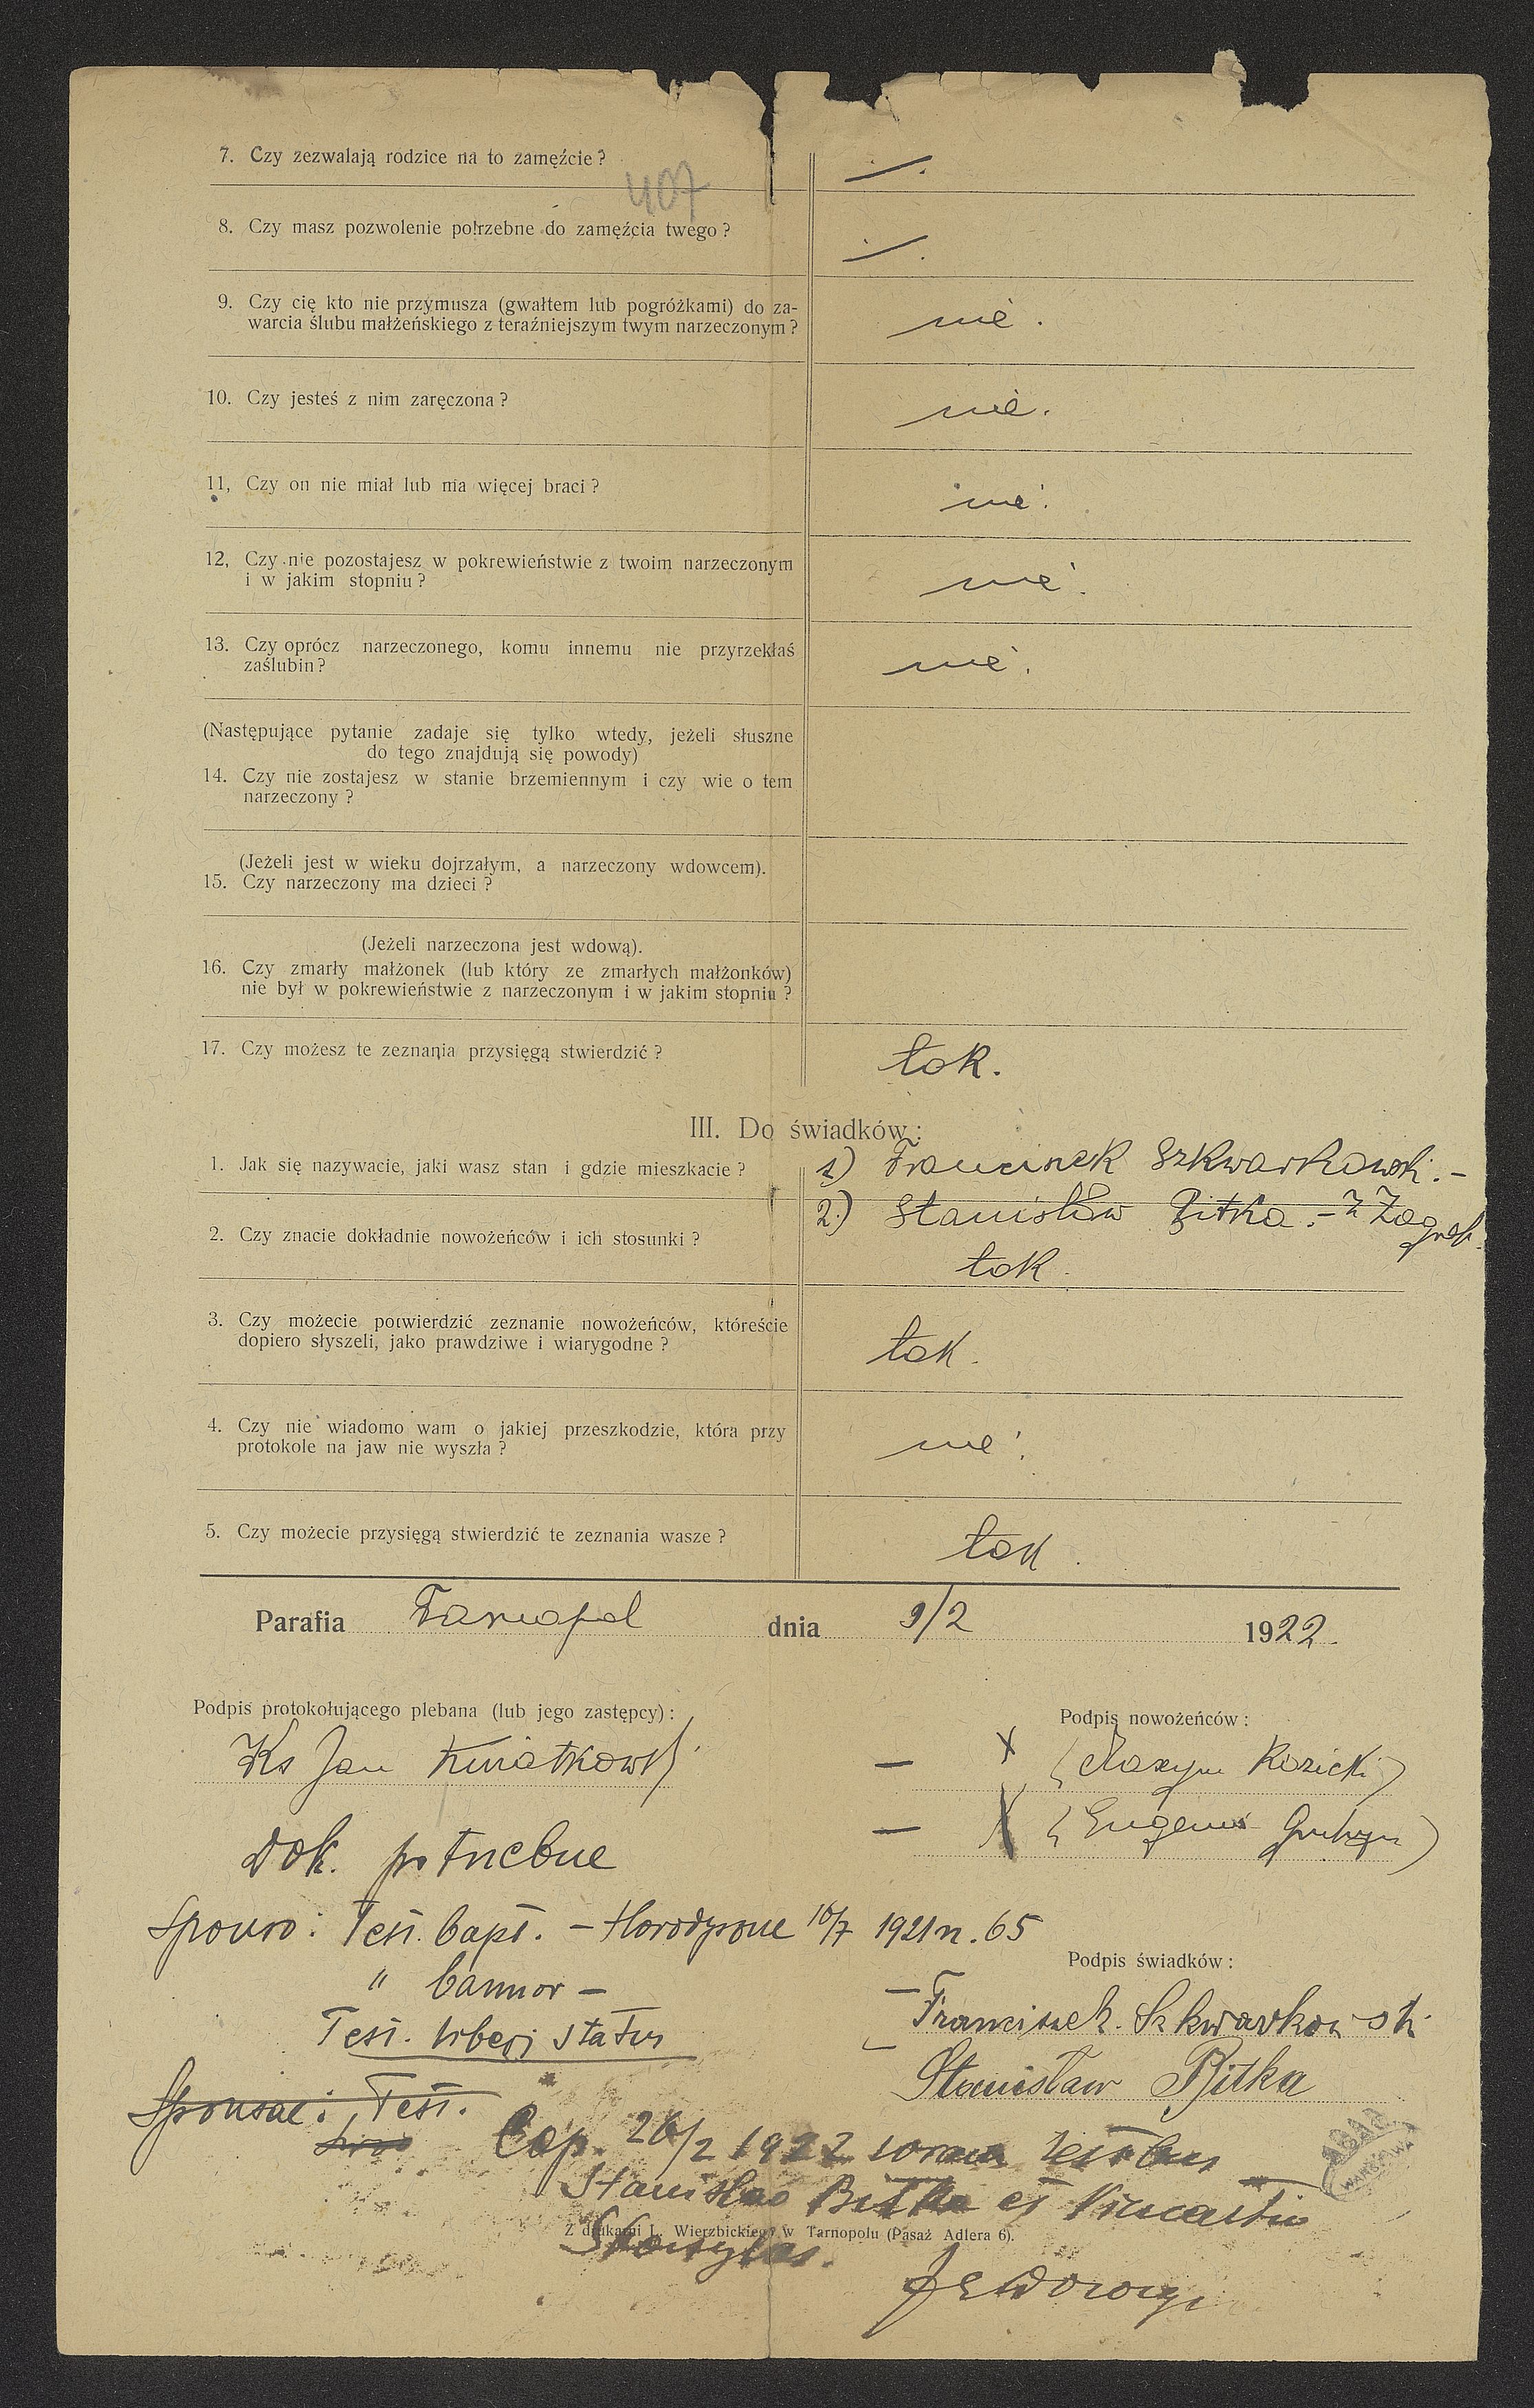 7. Czy zezwalają rodzice na to zamęźcie ?
407
8. Czy masz pozwolenie potrzebne do zamęźcia twego ?
9. Czy cię kto nie przymusza (gwałtem lub pogróżkami) do za-
warcia ślubu małżeńskiego z teraźniejszym twym narzeczonym ? nie.
10. Czy jesteś z nim zaręczona ? nie.
11, Czy on nie miał lub ma więcej braci ? nie.
12, Czy nie pozostajesz w pokrewieństwie z twoim narzeczonym
i w jakim stopniu ? nie.
13. Czy oprócz narzeczonego, komu innemu nie przyrzekłaś
zaślubin ? nie.
(Następujące pytanie zadaje się tylko wtedy, jeżeli słuszne
do tego znajdują się powody)
14. Czy nie zostajesz w stanie brzemiennym i czy wie o tem
narzeczony ?
(Jeżeli jest w wieku dojrzałym, a narzeczony wdowcem).
15. Czy narzeczony ma dzieci ?
(Jeżeli narzeczona jest wdową).
16. Czy zmarły małżonek (lub który ze zmarłych małżonków)
nie był w pokrewieństwie z narzeczonym i w jakim stopniu ?
17. Czy możesz te zeznania przysięgą stwierdzić ? tak.
III. Do świadków :
1. Jak się nazywacie, jaki wasz stan i gdzie mieszkacie ? 1) Franciszek Szkwarkowski. –
2.) Stanisław Bitka. – z Zagrob.
2. Czy znacie dokładnie nowożeńców i ich stosunki ? tak.
3. Czy możecie potwierdzić zeznanie nowożeńców, któreście
dopiero słyszeli, jako prawdziwe i wiarygodne ? tak.
4. Czy nie wiadomo wam o jakiej przeszkodzie, która przy
protokole na jaw nie wyszła ? nie.
5. Czy możecie przysięgą stwierdzić te zeznania wasze ? tak.
Parafia Tarnopol dnia 9/2 1922.
Podpis protokołującego plebana (lub jego zastępcy) :
Podpis nowożeńców :
Ks Jan Kwiatkowski
– X (Maxym Kozicki)
– X (Eugenia
Dok. potrzebne
Sponso : Test. bapt. – 1921 n. 65
Podpis świadków :
" bannor –
Franciszek Szkwarkowski
Test. liberi status
Stanisław Bitka
Sponsae : Test.
Cop. 26/2 1922 coram testibus
Stanislao Bitka et
Z drukarni L. Wierzbickiego w Tarnopolu (Pasaż Adlera 6).